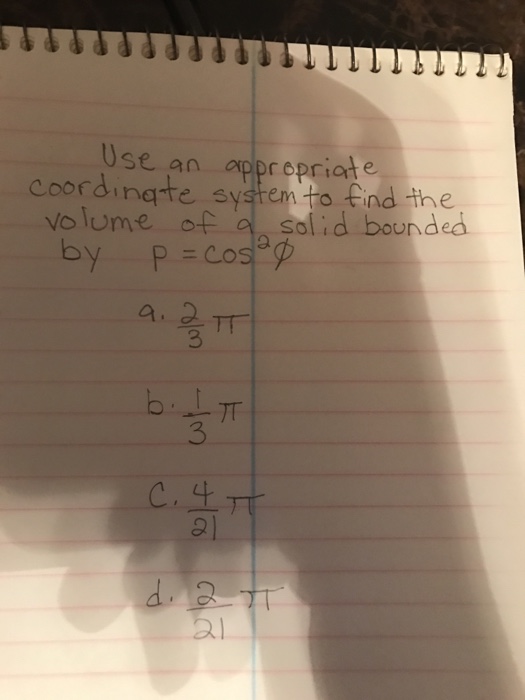 Use an appropriate
coordinate system to find the
volume of a solid bounded
by p = cos²φ
a. 2/3 π
b. 1/3 π
C. 4/21 π
d. 2/21 π